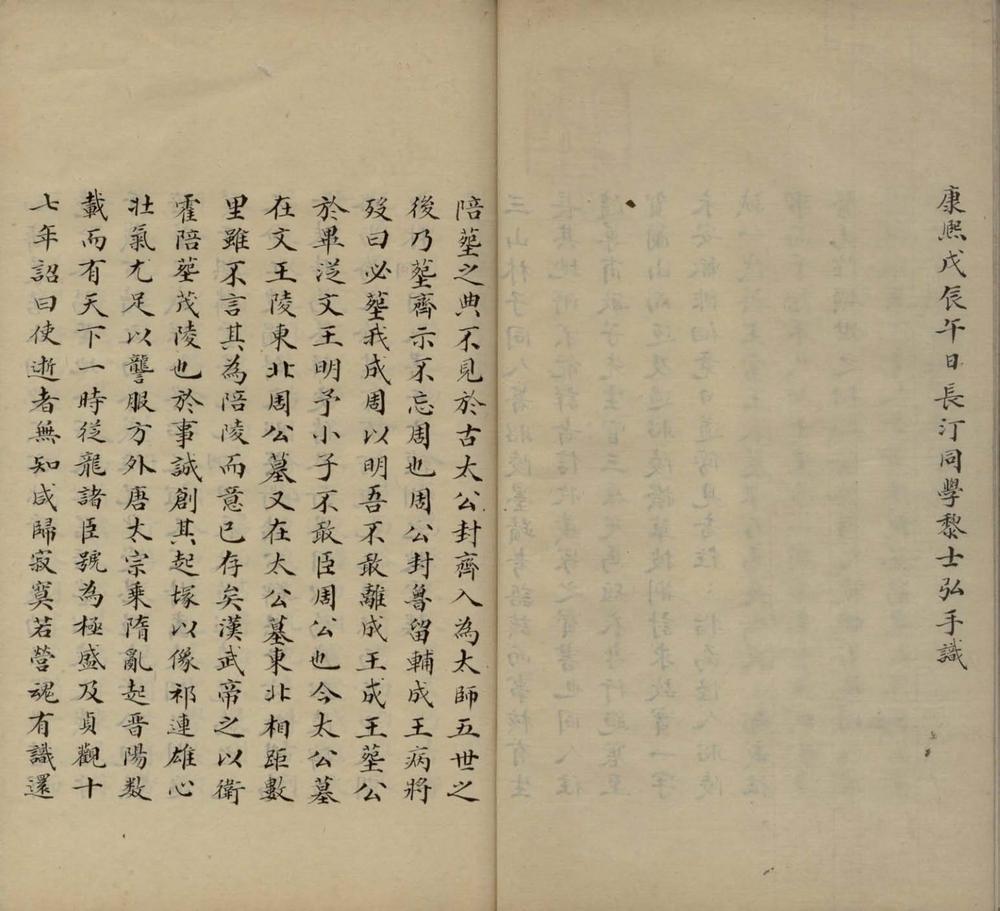 康熙戊辰午日長汀同學黎士弘手識
陪塟之典不見於古太公封齊入為太師五世之
後乃塟齊示不忘周也周公封魯留輔成王病將
歿曰必塟我成周以明吾不敢離成王成王塟公
於畢從文王明予小子不敢臣周公也今太公墓
在文王陵東北周公墓又在太公墓東北相距數
里雖不言其為陪陵而意已存矣漢武帝之以衛
霍陪塟茂陵也於事誠創其起塚以像祁連雄心
壯氣尤足以讋服方外唐太宗乘隋亂起晉陽数
載而有天下一時從龍諸臣號為極盛及貞觀十
七年詔曰使逝者無知咸歸寂寞若營魂有識還